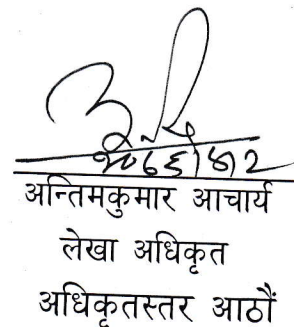 अन्तिमकुमार आचार्य
लेखा अधिकृत
अधिकृतस्तर आठौं